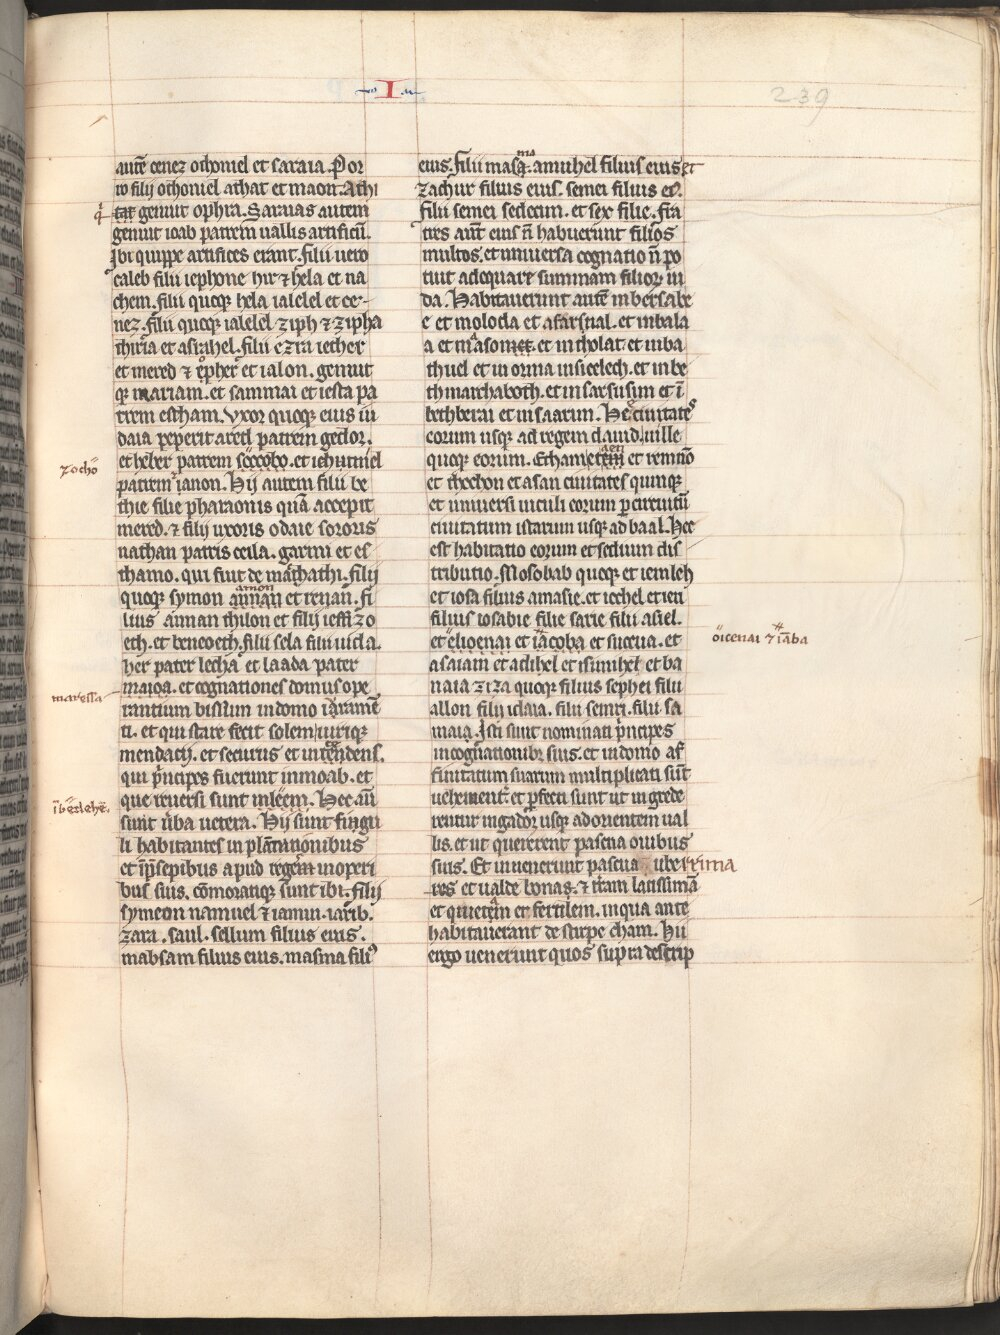 I
239
autē cenez othoniel et saraia. Por
ro filij othoniel athat et maon. Athi
q̇
tat genuit ophra. Saruas autem
genuit ioab patrem uallis artificū.
Ibi quippe artifices erant. filii uero
caleb filii iephone hir ⁊ hela et na
chem. filii quoqꝫ hela ialelel et ce-
nez. filii quoqꝫ ialelel ziph ⁊ zipha
thiria et asrahel. filii ezra iether
et mered ⁊ epher et ialon. genuit
qꝫ mariam. et sammai et iesta pa
trem escham. Vxor quoqꝫ eius iu
daia peperit ared patrem gedor.
et heber patrem soccobo. et ichutuiel
zocho
patrem ianon. Hij autem filii be
thie filie pharaonis quā accepit
mered. ⁊ filij uxoris odaie sororis
nathan patris ceila. garmi et es
thamo. qui fuit de machathi. filij
amon
quoqꝫ symon annan et renan. fi
lius annan thilon et filij iesfi zo
eth. et benzoeth. filii sela filii iuda.
her pater lecha et laada pater
maiosa. et cognationes domus ope
maressa
rantium bissum in domo iuramē
ti. et qui stare fecit solem uirique
mendacij. et securus et intendens.
qui p̄ncipes fuerunt in moab. et
que reuersi sunt in leem. Hec aū
ī betlehē.
sunt ūba uetera. Hij sunt finguᷓ
li habitantes in plātationibus
et ī sepibus apud regem in operi
bus suis. cōmoratiqꝫ sunt ibi. filij
symeon namuel ⁊ iamin. iarib.
zara. saul. sellum filius eius.
mabsam filius eius. masma filiꝰ
eius. filii masqͣ. amuhel filius eius et
ma
zachur filius eius. semei filius eꝰ.
filii semei sedecim. et sex filie. fra
tres aūt eius n̄ habuerunt filios
multos. et uniuersa cognatio n̄ po
tuit adequare summam filioꝝ iu
da. Habitauerunt autē in bersabe
e et molada et asarsual. et in bala
a et in asomet. et in tholat. et in ba
thuel et in orma in sicelech. et in be
thmarchaboth. et in sarsusim et ī
bethberai et in saarim. Hee ciuitates
eorum usqꝫ ad regem dauid. uille
quoqꝫ eorum. Etham etem et remmō
aen
et thochon et asan ciuitates quinqꝫ
et uniuersi uiculi eorum per circuitū
ciuitatum istarum usqꝫ ad baal. Hec
est habitatio eorum et sedium dis
tributio. Mosobab quoqꝫ et iemlech
et iosa filius amasie. et iohel et ieu
filius iosabie filie sarie filii asiel.
et elioenai et iacoba et sucua. et
oicenai ⁊ iaᷓba
asaiam et adihel et isimihel et ba
naia ziza quoqꝫ filius sephei filii
allon filij idaia. filii semri. filii sa
maia. Isti sunt nominati p̄ncipes
in cognationibꝫ suis. et in domo af
finitatum suarum multiplicati sūt
uehementꝰ. et pfecti sunt ut ingrede
rentur in gador usqꝫ ad orientem ual
lis. et ut quererent pascua ouibus
suis. Et inuenerunt pascua uberrima
res et ualde bonas. ⁊ tram latissimā
et quietem et fertilem. in qua ante
habitauerant de stirpe cham. Hii
ergo uenerunt quos supra descrip